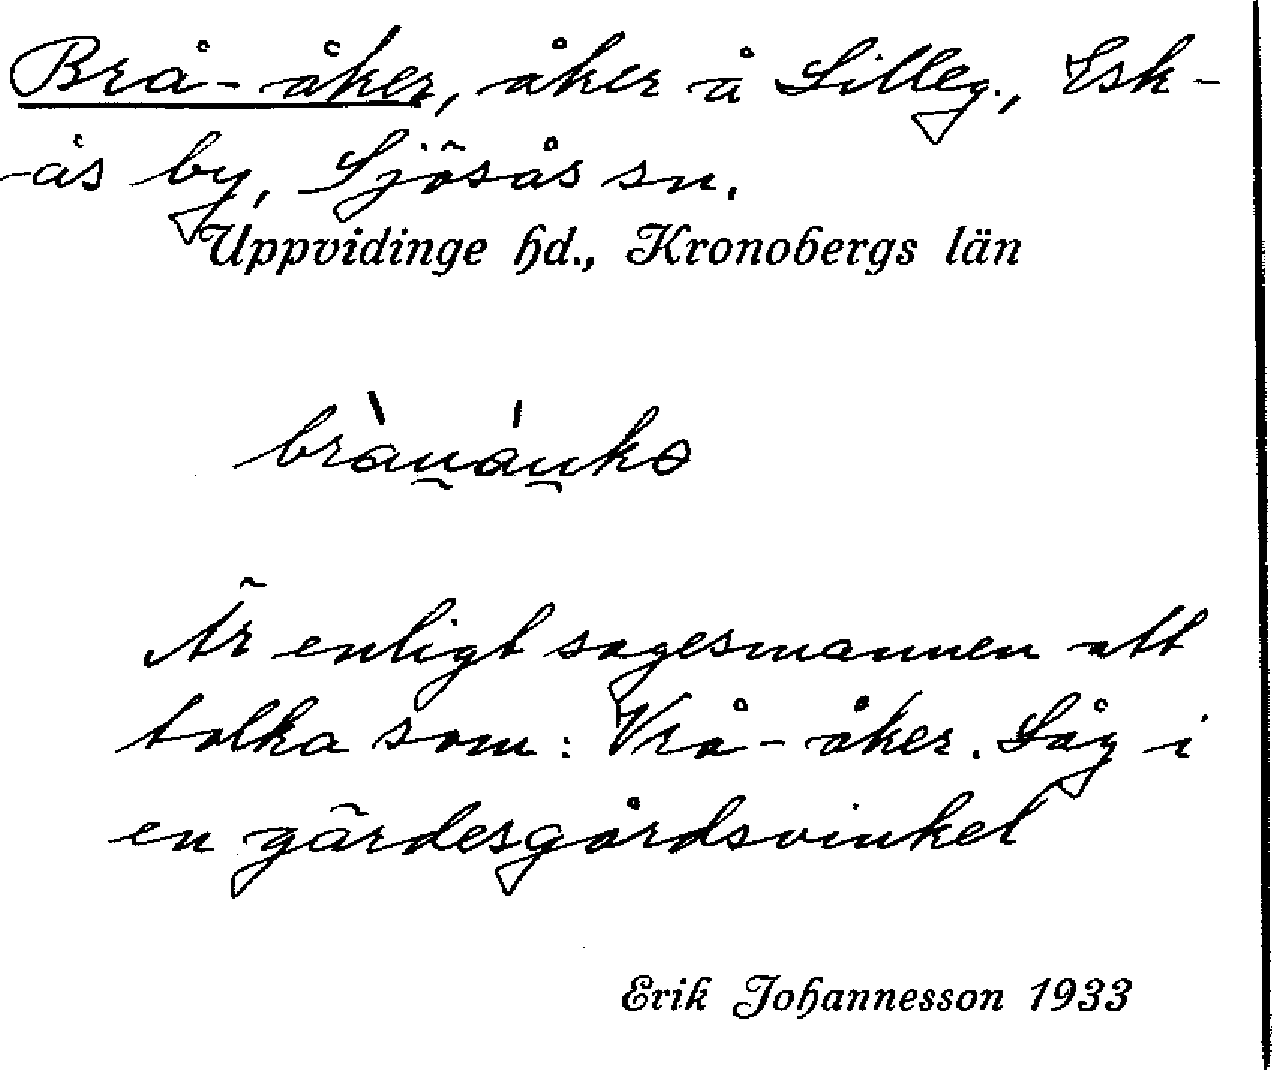 Brå-åker, åker å Lilleg., Esk-
-ås by, Sjösås sn.
Uppvidinge hd., Kronobergs län
Är enligt sagesmannen att
tolka som: Vrå-åker. Låg i
en gärdesgårdsvinkel
Erik Johannesson 1933